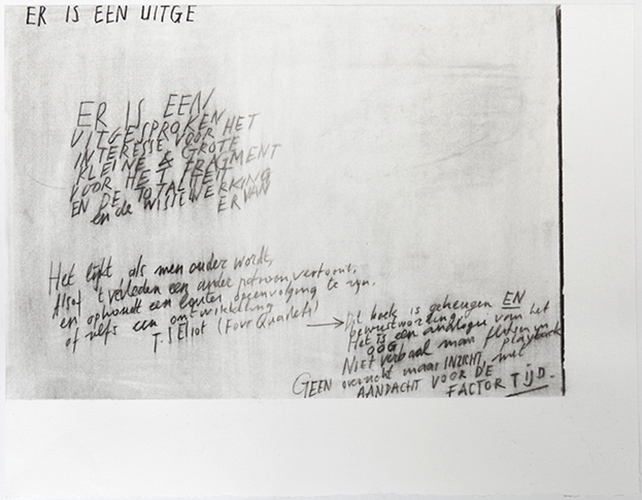 ER IS EEN UITGE
ER IS EEN
UITGESPROKEN
INTERESSE VOOR HET
KLEINE & GROTE
VOOR HET FRAGMENT
EN DE TOTALITEIT
en de WISSELWERKING
ERVAN
Het lijkt als men ouder wordt,
Alsof 't verleden een ander patroon vertoont,
en ophoudt een louter opeenvolging te zijn,
of zelfs een ontwikkeling
T.S Eliot (Four Quartets)
→ Dit boek is geheugen EN
bewustwording.
Het is een analogie van het
OOG
Niet verbaal maar flitsen en playback
GEEN overzicht maar INZICHT, met
AANDACHT VOOR DE
FACTOR TIJD.